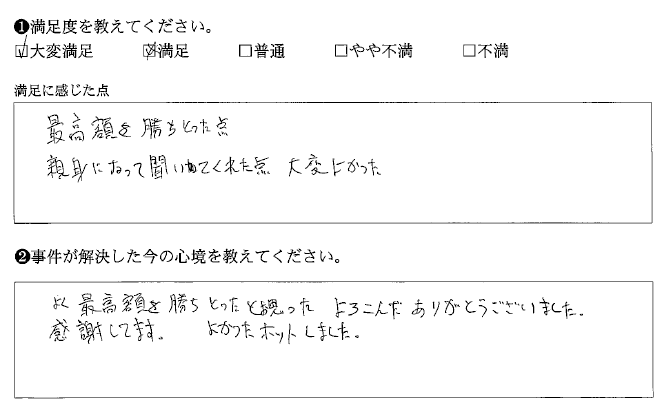 ❶満足度を教えてください。
☑大変満足 ☑満足 □普通 □やや不満 □不満
満足に感じた点
最高額を勝ちとった点
親身になって聞いてくれた点 大変よかった
❷事件が解決した今の心境を教えてください。
最高額を勝ちとったと思った よろこんだ ありがとうございました。
感謝してます。 よかったホットしました。